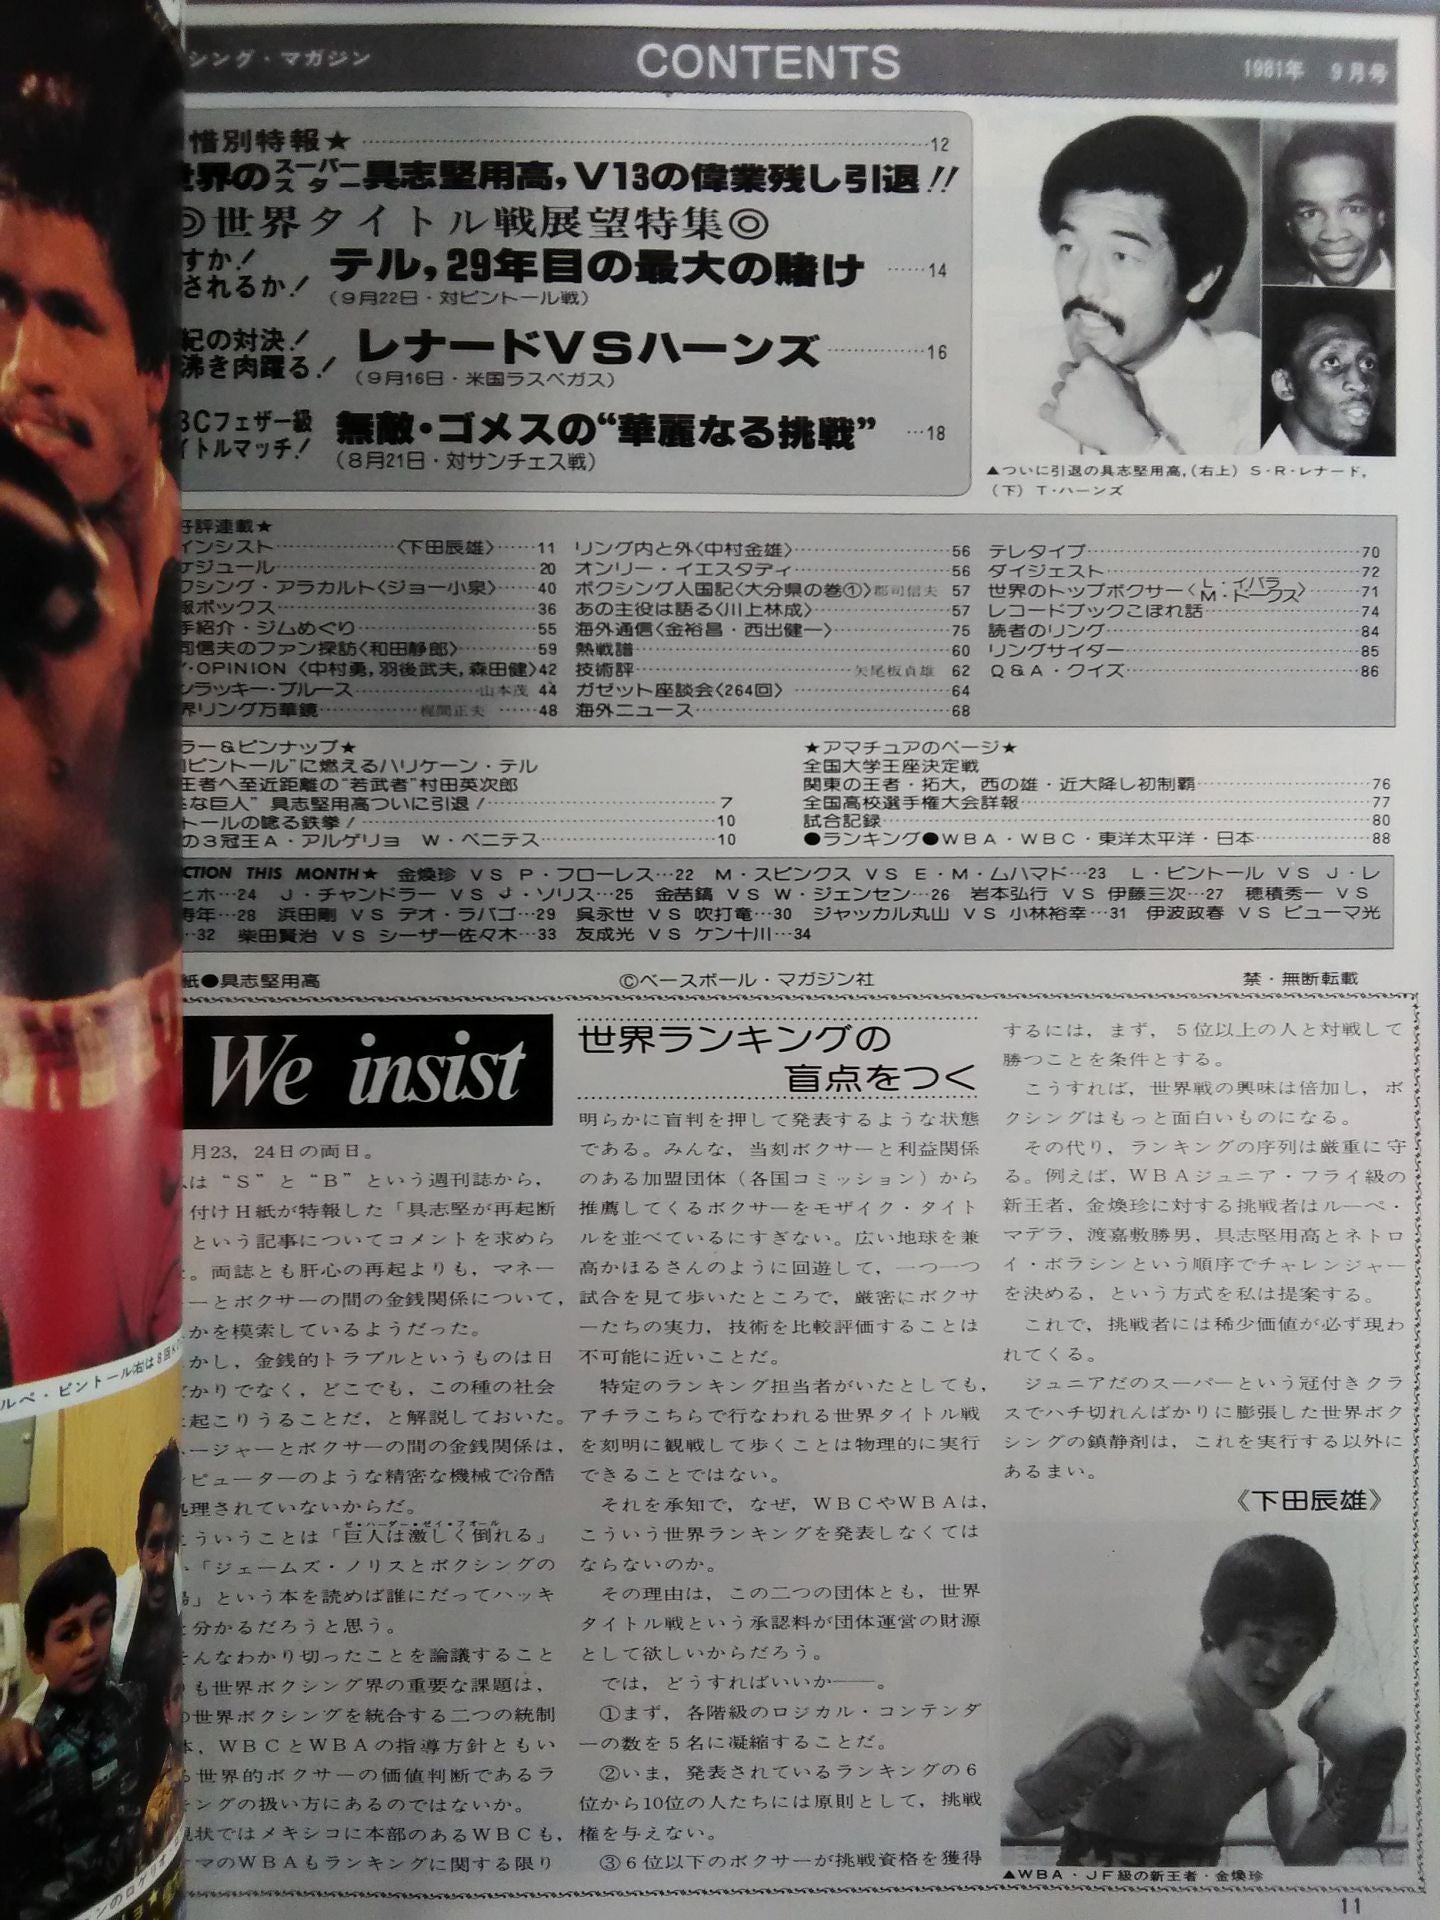 シング・マガジン
CONTENTS
1981年 9月号
惜別特報★ 12
世界のスーパースター具志堅用高，V13の偉業残し引退!!
◎世界タイトル戦展望特集◎
すか！
されるか！
テル，29年目の最大の賭け ……14
（9月22日・対ピントール戦）
紀の対決！
沸き肉躍る！
レナードVSハーンズ 16
（9月16日・米国ラスベガス）
BCフェザー級
イトルマッチ！
無敵・ゴメスの“華麗なる挑戦” …18
（8月21日・対サンチェス戦）
▲ついに引退の具志堅用高，（右上）S・R・レナード，
（下）T・ハーンズ
好評連載★
インシスト〈下田辰雄〉……11
ケジュール 20
クシング・アラカルト〈ジョー小泉〉 40
報ボックス 36
手紹介・ジムめぐり 55
司信夫のファン探訪〈和田静郎〉 59
・OPINION〈中村勇，羽後武夫，森田健〉42
ンラッキー・ブルース 山本茂 44
界リング万華鏡 梶間正夫 ……48
リング内と外〈中村金雄〉 56
オンリー・イエスタディ 56
ボクシング人国記〈大分県の巻①〉郡司信夫 57
あの主役は語る〈川上林成〉 57
海外通信〈金裕昌・西出健一〉 75
熱戦譜 60
技術評 矢尾板貞雄 62
ガゼット座談会〈264回〉 64
海外ニュース 68
テレタイプ 70
ダイジェスト 72
世界のトップボクサー〈L・イバラ M・ドークス〉 71
レコードブックこぼれ話 74
読者のリング 84
リングサイダー 85
Q&A・クイズ 86
ラー&ピンナップ★
ピントール”に燃えるハリケーン・テル
王者へ至近距離の“若武者”村田英次郎
な巨人”具志堅用高ついに引退！ 7
トールの唸る鉄拳！ 10
の3冠王A・アルゲリョ W・ベニテス 10
★アマチュアのページ★
全国大学王座決定戦
関東の王者・拓大，西の雄・近大降し初制覇 76
全国高校選手権大会詳報 77
試合記録 80
●ランキング●WBA・WBC・東洋太平洋・日本 88
CTION THIS MONTH★ 金煥珍 VS P・フローレス…22 M・スピンクス VS E・M・ムハマド…23 L・ピントール VS J・レ
ヒホ…24 J・チャンドラー VS J・ソリス…25 金喆鎬 VS W・ジェンセン…26 岩本弘行 VS 伊藤三次…27 穂積秀一 VS
寿年…28 浜田剛 VS テオ・ラバゴ…29 呉永世 VS 吹打竜…30 ジャッカル丸山 VS 小林裕幸…31 伊波政春 VS ピューマ光
…32 柴田賢治 VS シーザー佐々木…33 友成光 VS ケン十川…34
紙●具志堅用高
©ベースボール・マガジン社
禁・無断転載
We insist
世界ランキングの
盲点をつく
月23，24日の両日。
は“S”と“B”という週刊誌から，
付けH紙が特報した「具志堅が再起断
」という記事についてコメントを求めら
。両誌とも肝心の再起よりも，マネー
ーとボクサーの間の金銭関係について，
かを模索しているようだった。
かし，金銭的トラブルというものは日
かりでなく，どこでも，この種の社会
起こりうることだ，と解説しておいた。
ージャーとボクサーの間の金銭関係は，
ピューターのような精密な機械で冷酷
処理されていないからだ。
こういうことは「巨人は激しく倒れる」
ゼ・ハーダー・ゼイ・フォール
「ジェームズ・ノリスとボクシングの
」という本を読めば誰にだってハッキ
と分かるだろうと思う。
そんなわかり切ったことを論議すること
も世界ボクシング界の重要な課題は，
世界ボクシングを統合する二つの統制
，WBCとWBAの指導方針ともい
世界的ボクサーの価値判断であるラ
キングの扱い方にあるのではないか。
現状ではメキシコに本部のあるWBCも，
マのWBAもランキングに関する限り
明らかに盲判を押して発表するような状態
である。みんな，当刻ボクサーと利益関係
のある加盟団体（各国コミッション）から
推薦してくるボクサーをモザイク・タイト
ルを並べているにすぎない。広い地球を兼
高かほるさんのように回遊して，一つ一つ
試合を見て歩いたところで，厳密にボクサ
ーたちの実力，技術を比較評価することは
不可能に近いことだ。
特定のランキング担当者がいたとしても，
アチラこちらで行なわれる世界タイトル戦
を刻明に観戦して歩くことは物理的に実行
できることではない。
それを承知で，なぜ，WBCやWBAは，
こういう世界ランキングを発表しなくては
ならないのか。
その理由は，この二つの団体とも，世界
タイトル戦という承認料が団体運営の財源
として欲しいからだろう。
では，どうすればいいか──。
①まず，各階級のロジカル・コンテンダ
ーの数を5名に凝縮することだ。
②いま，発表されているランキングの6
位から10位の人たちには原則として，挑戦
権を与えない。
③6位以下のボクサーが挑戦資格を獲得
するには，まず，5位以上の人と対戦して
勝つことを条件とする。
こうすれば，世界戦の興味は倍加し，ボ
クシングはもっと面白いものになる。
その代り，ランキングの序列は厳重に守
る。例えば，WBAジュニア・フライ級の
新王者，金煥珍に対する挑戦者はルーペ・
マデラ，渡嘉敷勝男，具志堅用高とネトロ
イ・ボラシンという順序でチャレンジャー
を決める，という方式を私は提案する。
これで，挑戦者には稀少価値が必ず現わ
れてくる。
ジュニアだのスーパーという冠付きクラ
スでハチ切れんばかりに膨張した世界ボク
シングの鎮静剤は，これを実行する以外に
あるまい。
《下田辰雄》
▲WBA・JF級の新王者・金煥珍
11
ルペ・ピントール(右)は8回
ンのロゲリオ